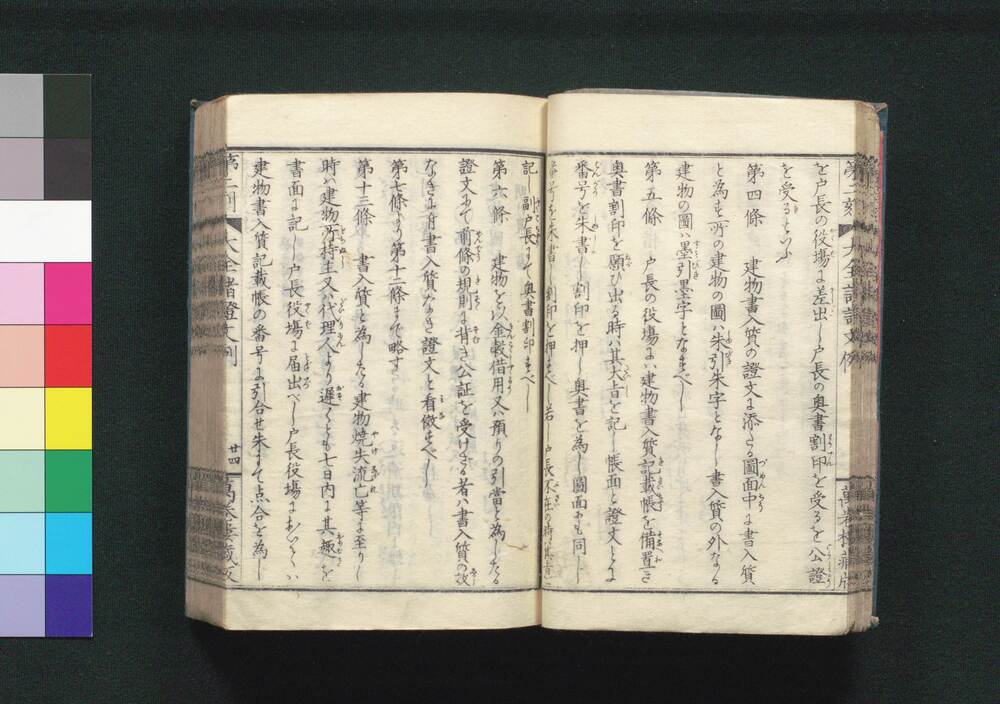 を戸長の役場に差出し戸長の奥書割印を受るを公證
を受るといふ
第四條 建物書入質の證文に添たる圖面中に書入質
と為す所の建物の圖ハ朱引朱字となし書入質の外なる
建物の圖ハ墨引墨字となすべし
第五條 戸長の役場にハ建物書入質記載帳を備置き
奥書割印を願ひ出る時ハ其大旨を記し帳面と證文とに
番号を朱書し割印を押し奥書を為し圖面にも同し
番号を朱書し割印を押すべし若 戸長不在の時ハ其旨を
記し副戸長にて奥書割印すべし
第六條 建物を以金穀借用又ハ預りの引當と為したる
證文にて前條の規則に背き公証を受けざる者ハ書入質の效
なきに付書入質なき證文と看做すべし
第七條より第十二條まで略す
第十三條 書入質と為したる建物焼失流亡等に至りし
時ハ建物所持主又ハ代理人より遅くとも七日内に其趣を
書面に記し戸長役場に届出べし戸長役場においてハ
建物書入質記載帳の番号に引合せ朱にて点合を為し
廿四